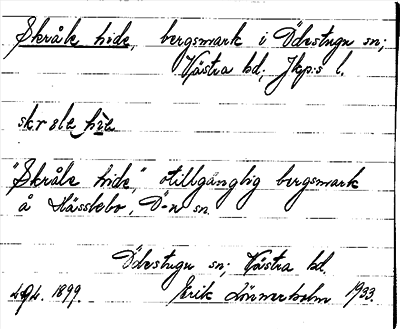 Skråle hide, bergsmark i Ödestugu sn;
Västra hd; Jkp:s l.
skrole hie
"Skråle hide", otillgänglig bergsmark
å Hässlebo, Ö-u sn.
Ödestugu sn; Västra hd.
1899. Erik Lönnerholm 1933.